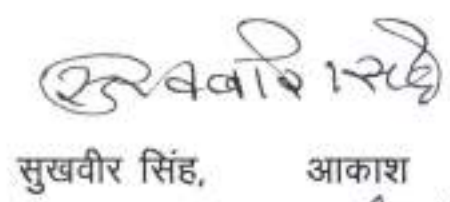 सुखवीर सिंह
सुखवीर सिंह, आकाश